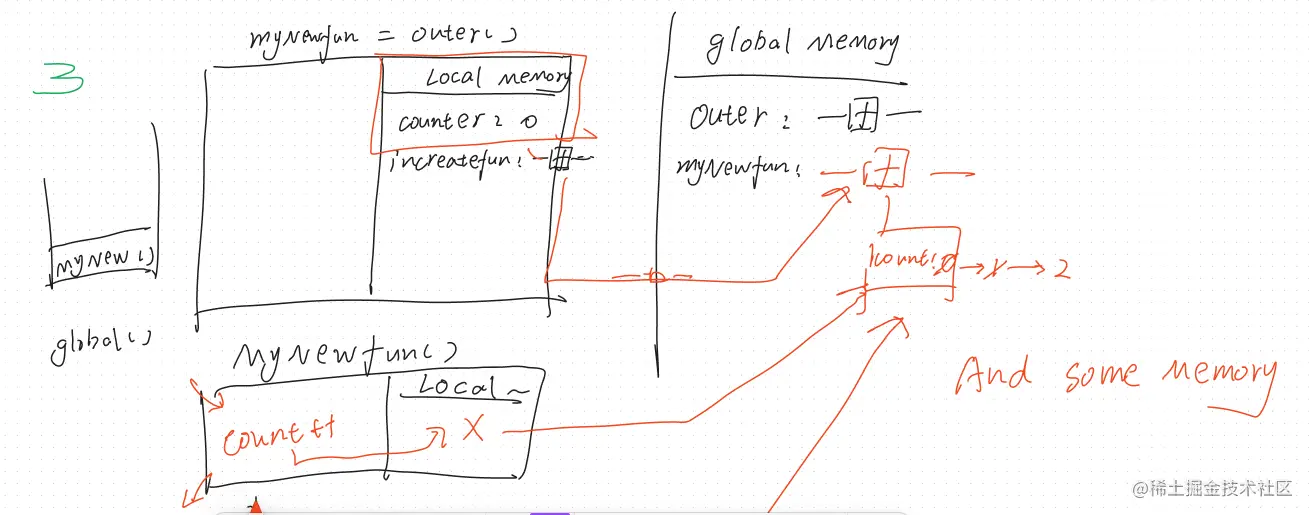 myNewfun = outer()
3
Local memory
counter: 0
increatefun:
myNew()
global()
global Memory
Outer:
myNewfun:
count: 0 → 1 → 2
MyNewfun()
Local ~
count++
X
And some Memory
@稀土掘金技术社区